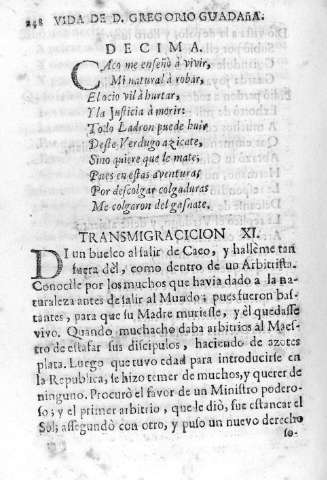 248 VIDA DE D. GREGORIO GUADAñA.
DECIMA.
CAco me enseñò à vivir,
Mi natural à robar,
El ocio vil à hurtar,
Y la Justicia à morir:
Todo Ladron puede huir
Deste Verdugo azicate,
Sino quiere que le mate;
Pues en estas aventuras
Por descolgar colgaduras
Me colgaron del gasnate.
TRANSMIGRACICION XI.
DI un buelco al salir de Caco, y hallème tan
fuera dèl, como dentro de un Arbitrista.
Conocile por los muchos que havia dado a la na-
turaleza antes de salir al Mundo; pues fueron bas-
tantes, para que su Madre muriesse, y èl quedasse
vivo. Quando muchacho daba arbitrios al Maes-
tro de estafar sus discipulos, haciendo de azotes
plata. Luego que tuvo edad para introducirse en
la Republica, se hizo temer de muchos, y querer de
ninguno. Procurò el favor de un Ministro podero-
so; y el primer arbitrio, que le diò, fue estancar el
Sol; assegundò con otro, y puso un nuevo derecho
so-